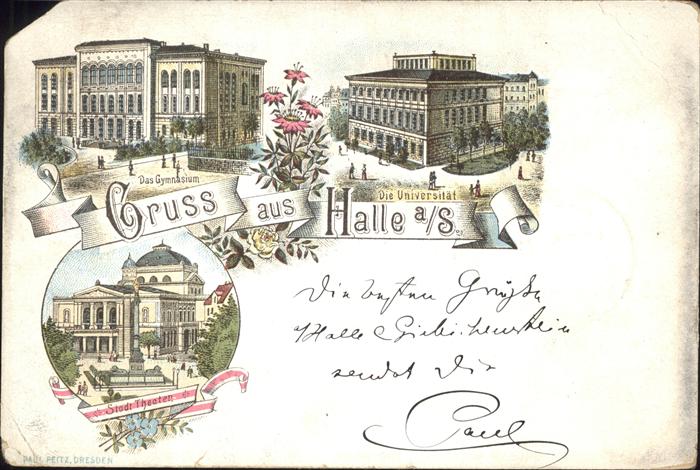 Das Gymnasium
Die Universität
Gruss aus Halle a/S.
Die besten Grüße
Halle Giebichenstein
sendet Dir
Paul
Stadt Theater
PAUL PEITZ, DRESDEN